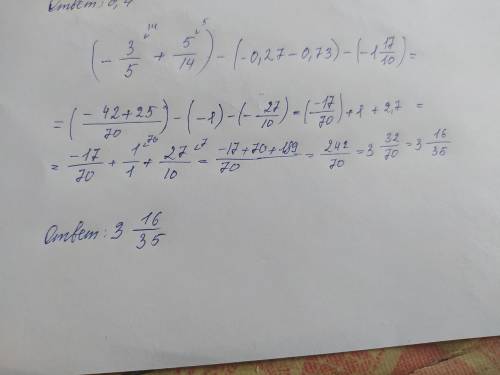 Ответ: 0,4
(- 3/5 ^14 + 5/14 ^5) - (-0,27-0,73) - (-1 17/10) =
= (-42+25/70) - (-1) - (-27/10) = (-17/70) + 1 + 2,7 =
= -17/70 + 1/1 ^70 + 27/10 ^7 = -17+70+189/70 = 242/70 = 3 32/70 = 3 16/35
Ответ: 3 16/35